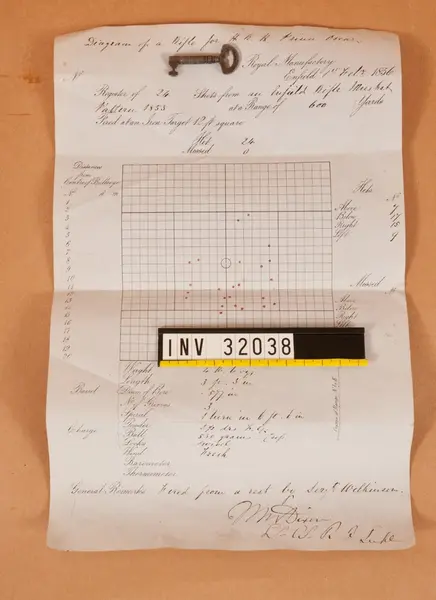 Diagram of a Rifle for H.R.H. Prince
Royal Manufactory
Enfield 1st Feb 1856
No
Register of 24 Shots from an Enfield Rifle Musket
Pattern 1853 at a Range of 600 Yards
Fired at an Iron Target 12 ft square
Hit 24
Missed 0
Distances
from
Centre of Bullseye
No
1
2
3
4
5
6
7
8
9
10
11
12
13
14
15
16
17
18
19
20
Hits
No
Above 7
Below 17
Right 15
Left 9
Missed
Above
Below
Right
INV 32038
Weight
Length 3 ft 3 in
Barrel Diam of Bore .577 in
No of Grooves 3
Spiral 1 turn in 6 ft 6 in
Charge Powder 2½ drs
Ball 530 grains
Wind Fresh
Barometer
Thermometer
General Remarks Fired from a rest by Serjt Wilkinson.
Dixon